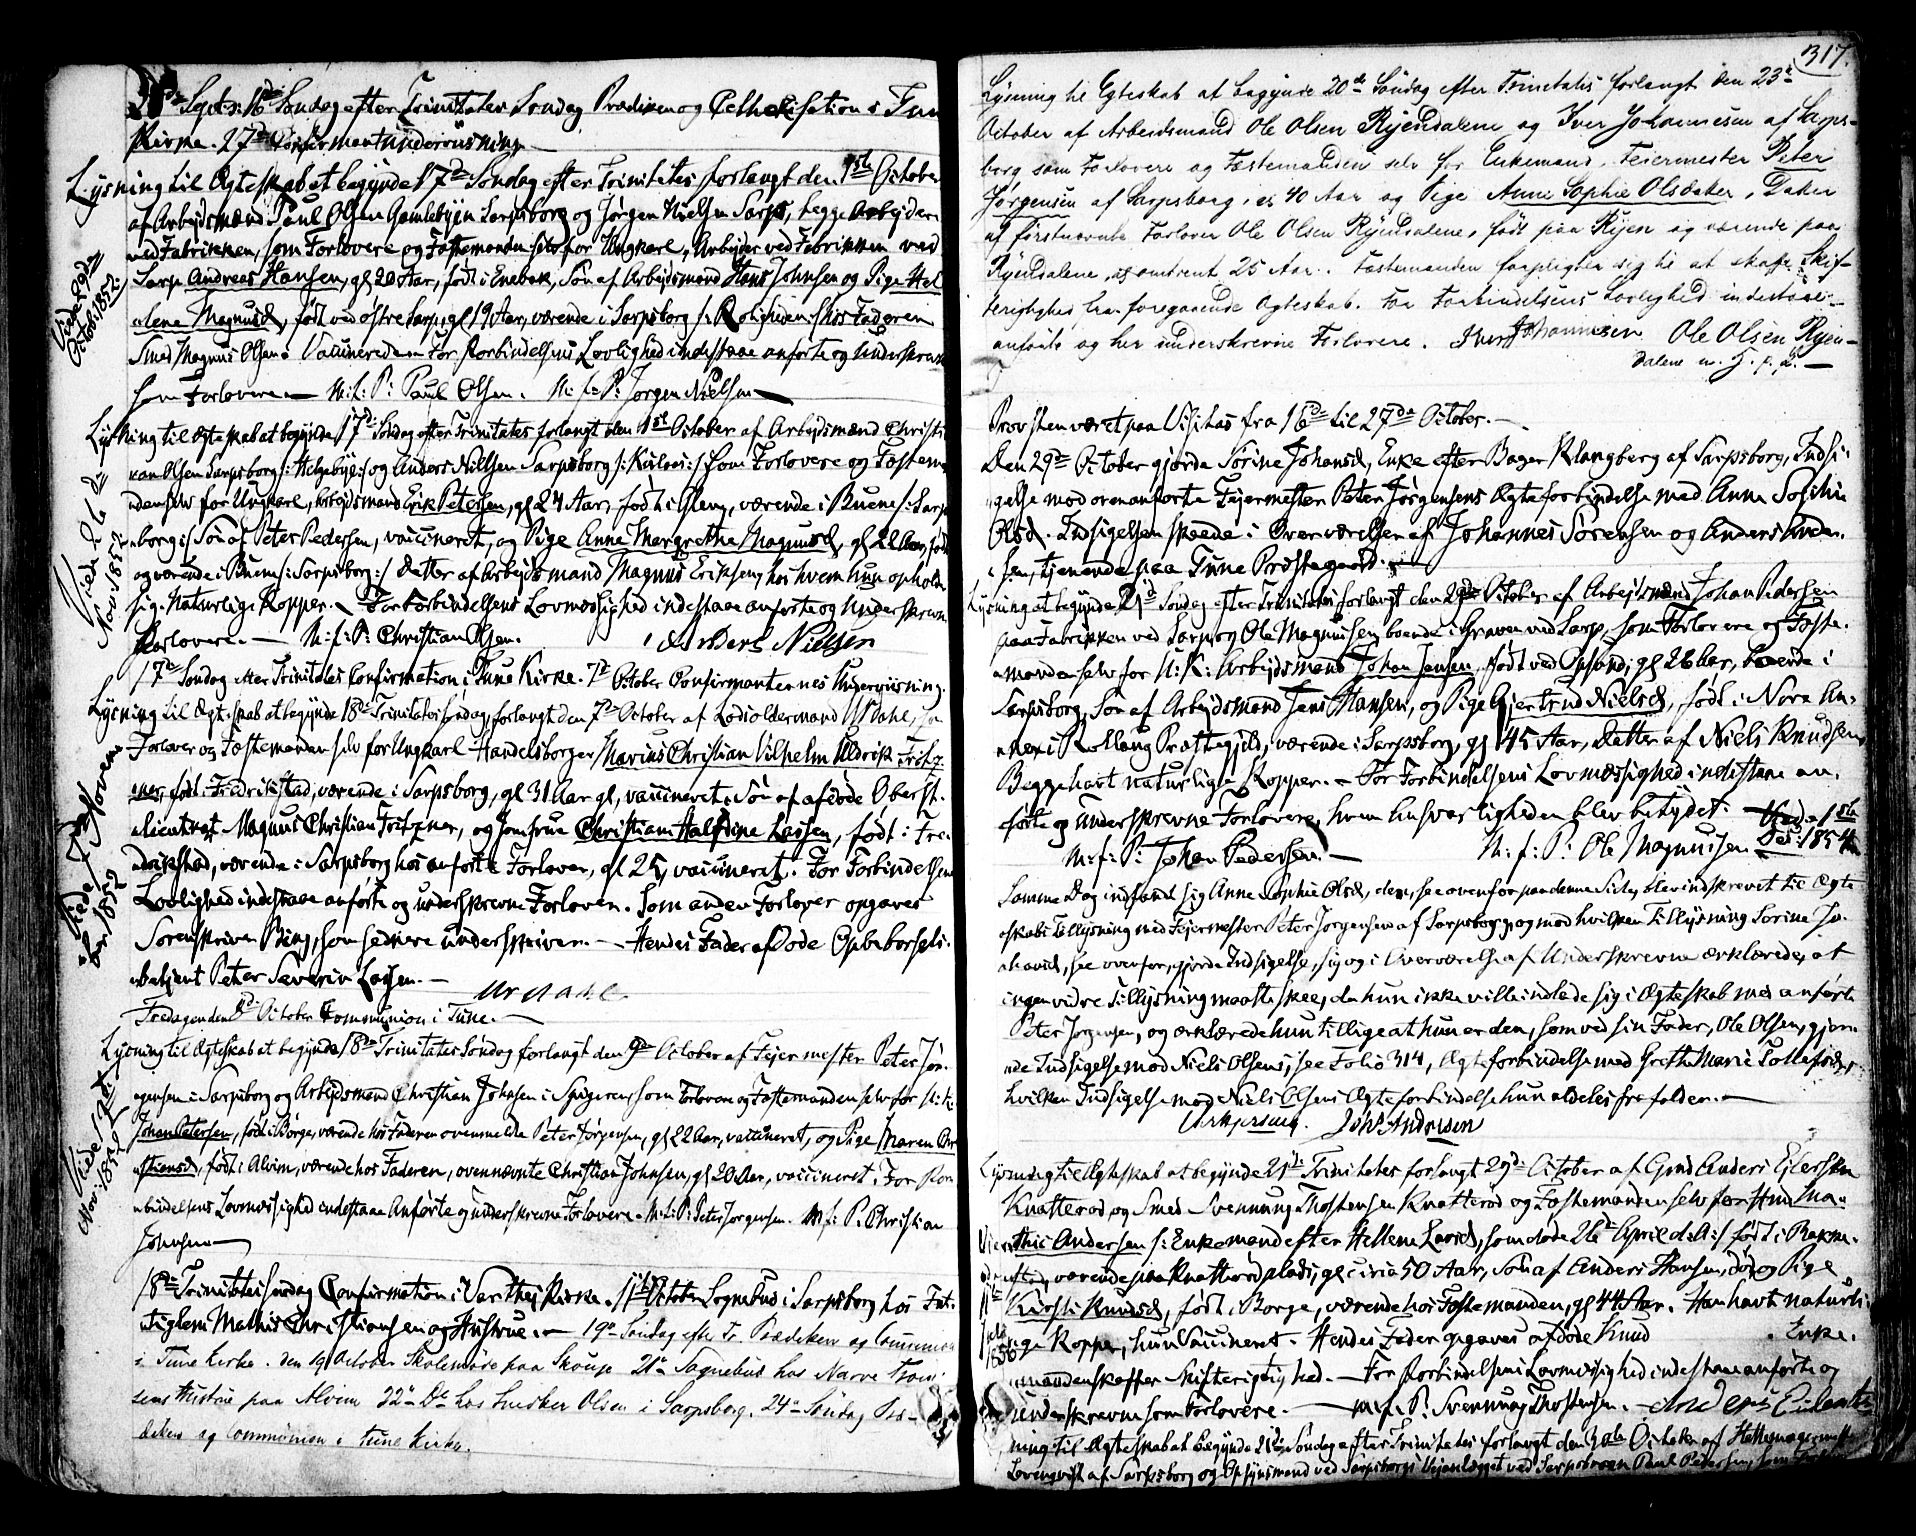 Septbr: 16de Søndag efter Trinitates Søndag Prædiken og Cathekisation i Tune
Kirke. 27de Confirmantunderviisning
Lysning til Ægteskab at begynde 17de Søndag efter Trinitates forlangt den 1ste October
af Arbejdsmænd Paul Olsen Gamlebyen Sarpsborg og Jørgen Nielsen Sarps, begge Arbejdere
ved Fabrikken, som Forlovere og Fæstemanden selv for Ungkarl, Arbejder ved Fabrikken ved
Sarp Andreas Hansen, gl 20 Aar, født i Enebak, Søn af Arbejdsmand Hans Johnsen og Pige Hel
lene Magnusd, født ved østre Sarp, gl 19 Aar, værende i Sarpsborg hos Faderen
Smed Magnus Olsen. Vaccinerede. For Forbindelsens Lovlighed indestaae anførte og underskrevne
som Forlovere. M: f: P: Paul Olsen. M: f: P: Jørgen Nielsen
Viede 9de
Octob: 1852.
Lysning til Ægteskab at begynde 17de Søndag efter Trinitates forlangt den 1st October af Arbejdsmænd Christi
an Olsen Sarpsborg /: Helgebye :/ og Anders Nielsen Sarpsborg som Forlovere og Fæstema
nden selv for Ungkarl, Arbejdsmand Erik Petersen, gl 24 Aar, født i Glemg, værende i Buene /: Sarps
borg :/ Søn af Peter Pedersen, vaccineret, og Pige Anne Margrethe Magnusd, gl 22 Aar, født
og værende i Buene /: Sarpsborg :/ Datter af Arbejdsmand Magnus Eriksen, hos hvem hun opholder
sig. Naturlige Kopper. For Forbindelsens Lovmæssighed indestaae anførte og underskrevne
Forlovere. M: f: P: Christian Olsen. Anders Nielsen
Viede 26de
Nov: 1852
17de Søndag efter Trinitates Confirmation i Tune Kirke. 7de October Confirmanternes Underviisning.
Lysning til Ægteskab at begynde 18de Trinitates Søndag, forlangt den 7de October af Lodsoldermand Urdahl, som
Forlover og Fæstemanden selv for Ungkarl Handelsborger Marius Christian Vilhelm Uldrik Fritz
ner, født i Fredrikstad, værende i Sarpsborg, gl 31 Aar gl, vaccineret. Søn af afdøde Oberst-
lieutnat Magnus Christian Fritzner, og Jomfrue Christiane Halfdine Lassen, født i Fre
drikstad, værende i Sarpsborg hos anførte Forlover, gl 25, vaccineret. For Forbindelsens
Lovlighed indestaae anførte og underskrevne Forlover. Som anden Forlover opgaves
Sorenskriver Bing, som senere underskriver. Hendes Fader afdøde Opbebørsels-
betjent Peter Severin Lassen.
Urdahl
Viede
br. 1852
Fredagen den 8de October Communion i Tune.
Lysning til Ægteskab at begynde 18de Trinitates Søndag forlangt den 9de October af Fejermester Peter Jør-
gensen i Sarpsborg og Arbejdsmand Christian Johnsen i Spigeren som Forlovere og Fæstemanden selv for U: K:
Johan Petersen, født i Borge, værende hos Faderen ovenmeldte Peter Jørgensen, gl 22 Aar, vaccineret, og Pige Maren Chr
istiansd, født i Alvim, værende hos Faderen, ovennævnte Christian Johnsen, gl 20 Aar, vaccineret. For For
bindelsens Lovmæssighed indestaae Anførte og underskrevne Forlovere. M: f: P: Peter Jørgensen. M: f: P: Christian
Johnsen
Viede 12te
Nov: 1852
18de Trinitates Søndag Confirmation i Varthejs Kirke. 11te October Sognebud i Sarpsborg hos Fat-
tiglem Mathis Christiansen og Hustrue. 19de Søndag efter Tr. Prædiken og Communion
i Tune Kirke. Den 19 October Skolemøde paa 21de Sognebud hos Narve Trom-
sens Hustrue paa Alvim 22de Do hos Snedker Olsen i Sarpsborg. 24de Søndag Præ-
diken og Communion i Tune Kirke.
317.
Lysning til Egteskab at begynde 20de Søndag efter Trinitatis forlangt den 23de
October af Arbeidsmand Ole Olsen Ryendalene og Iver Johannesen af Sarps-
borg som Forlovere og Fæstemanden selv for Enkemand, Feiermester Peter
Jørgensen af Sarpsborg, er 40 Aar og Pige Anne Sophie Olsdater, Dater
af førstnævnte Forlover Ole Olsen Ryendalene, født paa Ryen og værende paa
Ryendalene, omtrent 25 Aar. Fæstemanden forpligter sig til at skaffe Skif-
terigtighed fra foregaaende Egteskab. For Forbindelsens Lovlighed indestaaer
anførte og her underskrevne Forlovere. Iver Johannesen Ole Olsen Ryen-
dalene m. h. p. p.
Provsten været paa Visitas fra 16de til 27de October.
Den 29de October gjorde Sørine Johansd, Enke efter Bager Klangberg af Sarpsborg, Indsi-
gelse mod ovenanførte Fejermester Peter Jørgensens Ægteforbindelse med Anne Sophie
Olsd. Indsigelsen skeede i Overværelsen af Johannes Sørensen og Anders Andre-
sen, tjenende paa Tune Præstegaard.
Lysning at begynde 21de Søndag efter Trinitates forlangt den 29de October af Arbejdsmænd Johan Pedersen
paa Fabrikken ved Sarp og Ole Magnussen boende i Graven ved Sarp som Forlovere og Fæste-
manden selv for U: K: Arbejdsmand Johan Jensen, født ved Opsund, gl 26 Aar, boende i
Sarpsborg, Søn af Arbejdsmand Jens Hansen, og Pige Gjertrud Nielsd, født i Nore An-
nex i Rollaug Præstegjeld, værende i Sarpsborg, gl 45 Aar, Datter af Niels Knudsen,
Begge havt naturlige Kopper. For Forbindelsens Lovmæssighed indestaae an-
førte og underskrevne Forlovere, hvem Ansvarligheden blev betydet. Viede 1ste
M: f: P: Johan Pedersen. M: f: P: Ole Magnussen 1854
Samme Dag indfandt sig Anne Sophie Olsd, der, see ovenfor paa denne Side, blev indskrevet til Ægte
skabs Tillysning med Fejermester Peter Jørgensen af Sarpsborg, og mod hvilken Tillysning Sørine Jo-
hansd, see ovenfor, gjorde Indsigelse, sig og i Overværelse af Underskrevne erklærede, at
ingen vidre Tillysning maatte skee, da hun ikke ville indlade sig i Ægteskab med anførte
Peter Jørgensen, og erklærede hun tillige at hun er den, som ved sin Fader, Ole Olsen, gjor-
de Indsigelse mod Niels Olsens, see Folio 314, Ægteforbindelse med Grethe Marie Tollefsd,
hvilken Indsigelse mod Niels Olsens Ægteforbindelse hun aldeles frafalder.
Joh's Andresen
Lysning til Ægteskab at begynde 21de Trinitates forlangt 29de October af Grd Anders Ejlersen
Knatterød og Smed Svennung Thostensen Knatterød og Fæstemanden selv for Hmd Ma-
this Andersen /: Enkemand efter Hellene Larsd, som døde 26de April d: A: :/ født i Rakke-
stad, værende paa Knatterødplads, gl circa 50 Aar, Søn af Anders Hansen, død, og Pige
Kirsti Knudsd, født i Borge, værende hos Fæstemanden, gl 44 Aar. Han havt naturli-
ge Kopper, hun Vaccineret. Hendes Fader opgaves afdøde Knud . Enke-
manden skaffer Skifterigtighed. For Forbindelsens Lovmæssighed indestaae anførte og
underskrevne som Forlovere. M. f. P. Svennung Thostensen. Anders Eilertsen
ning til Ægteskab at begynde 21de Søndag efter Trinitates forlangt den 30te October af Hattemagermester
Lovenqvist af Sarpsborg og Opsynsmand ved Sarpsborgs Vejanlægget ved Sarpsbroen Paul Petersen, som